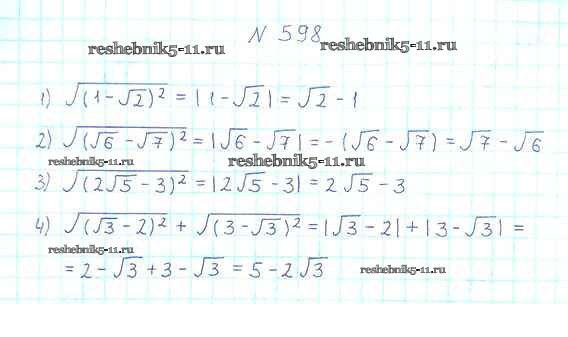 № 598
reshebnik5-11.ru reshebnik5-11.ru
1) √(1-√2)² = |1-√2| = √2 - 1
2) √(√6 - √7)² = |√6 - √7| = - (√6 - √7) = √7 - √6
reshebnik5-11.ru reshebnik5-11.ru
3) √(2√5 - 3)² = |2√5 - 3| = 2√5 - 3
4) √(√3 - 2)² + √(3 - √3)² = |√3 - 2| + |3 - √3| =
reshebnik5-11.ru
= 2 - √3 + 3 - √3 = 5 - 2√3 reshebnik5-11.ru